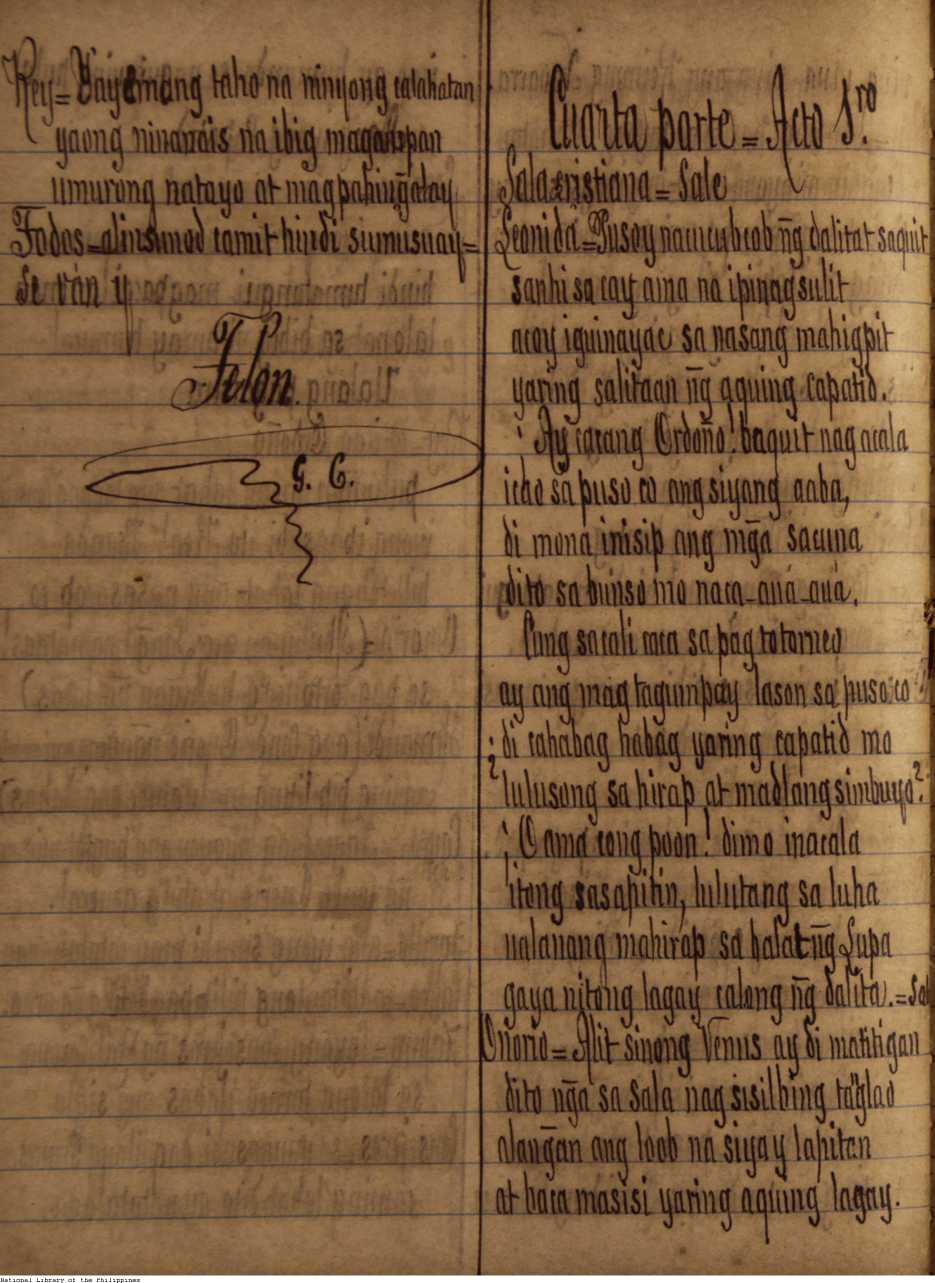 Rey= Yayamang taho na ninyong calahatan
yaong ninanais na ibig maganapan
umurong natayo at magpahingalay
Todos=alinsunod camit hindi sumusuay=
Se ván y
Telon.
G. C.
Cuarta parte = Acto 1.ro
Sala cristiana = Sale
Leonida=Pusoy nacucubcob ñg dalitat saquit
sanhi sa cay ama na ipinagsulit
acoy iguinayac sa nasang mahigpit
yaring salitaan ñg aquing capatid.
¡Ay cacang Ordoño! baquit nag acala
icao sa puso co ang siyang aaba,
di mona inisip ang mg̃a sacuna
dito sa bunso mo naca-auá-auá.
Cung sacali caca sa pag totorneo
ay ang mag tagumpay lason sa puso co
¡di cahabag habag yaring capatid mo
¿lulusong sa hirap at madlang simbuyo?
¡O ama cong poon! dimo inacala
itong sasapitin, lulutang sa luha
ualanang mahirap sa balat n̄g Lupa
gaya nitong lagay calong n̄g dalita.=Sale
Onorio=Alit sinong Venus ay di matitigan
dito ng̃a sa sala nag sisilbing tag̃lao
alang̃an ang loob na siyay lapitan
at baca masisi yaring aquing lagay.
National Library of the Philippines